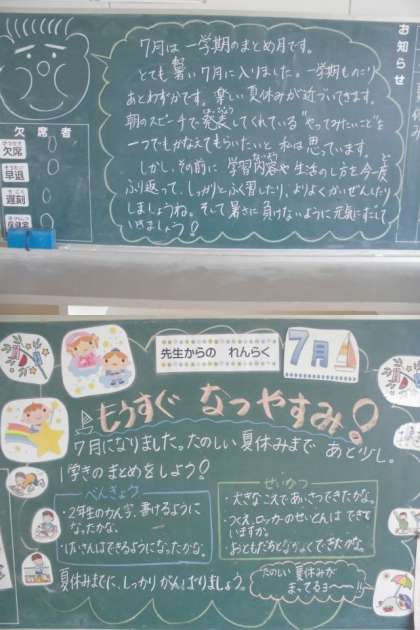 7月は一学期のまとめ月です。
とても暑い7月に入りました。一学期ものこり
あとわずかです。楽しい夏休みが近づいてきます。
朝のスピーチで発表してくれている“やってみたいこと”を
一つでもかなえてもらいたいと私は思っています。
しかし、その前に、学習内容や生活のし方を今一度
ふり返って、しっかりとふく習したり、よりよくかいぜんしたり
しましょうね。そして暑さに負けないように元気にすごして
いきましょう！
お知らせ
欠席者
欠席 0
早退 0
遅刻 0
保健室 0
先生からの れんらく
7月
もうすぐ なつやすみ！
7月になりました。たのしい夏休みまで あと少し。
1学きのまとめをしよう！
べんきょう
・2年生のかん字、書けるように
なったかな。
・けいさんはできるようになったかな。
せいかつ
・大きなこえであいさつできたかな。
・つくえ、ロッカーのせいとんは できて
いますか。
・おともだちとなかよくできたかな。
夏休みまでに、しっかりがんばりましょう。
たのしい夏休みが
まってるヨーー!!